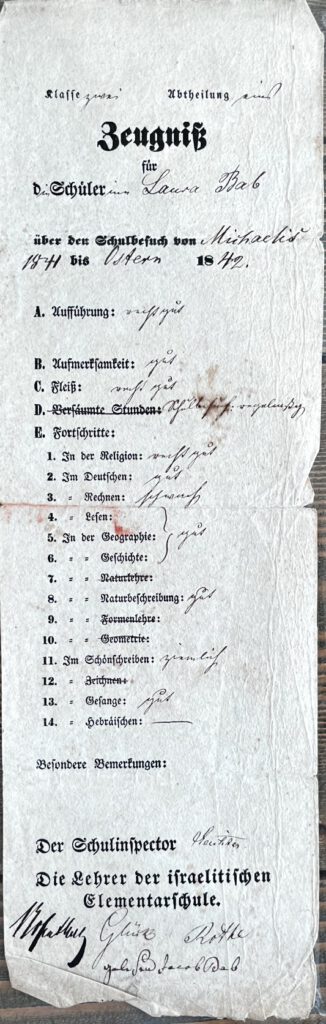 Klasse zwei Abtheilung eins
Zeugniß
für
die Schülerinn Laura Bab
über den Schulbesuch von Michaelis
1841 bis Ostern 1842.
A. Aufführung: recht gut
B. Aufmerksamkeit: gut
C. Fleiß: recht gut
D. Versäumte Stunden: Schulbesuch: regelmäßig
E. Fortschritte:
1. In der Religion: recht gut
2. Im Deutschen: gut
3. " Rechnen: schwach
4. " Lesen:
5. In der Geographie: gut
6. " " Geschichte:
7. " " Naturlehre:
8. " " Naturbeschreibung: gut
9. " " Formenlehre:
10. " " Geometrie:
11. Im Schönschreiben: ziemlich
12. " Zeichnen:
13. " Gesange: gut
14. " Hebräischen: —
Besondere Bemerkungen:
Der Schulinspector
Die Lehrer der israelitischen
Elementarschule.
Rothe
gelesen Jacob Bab